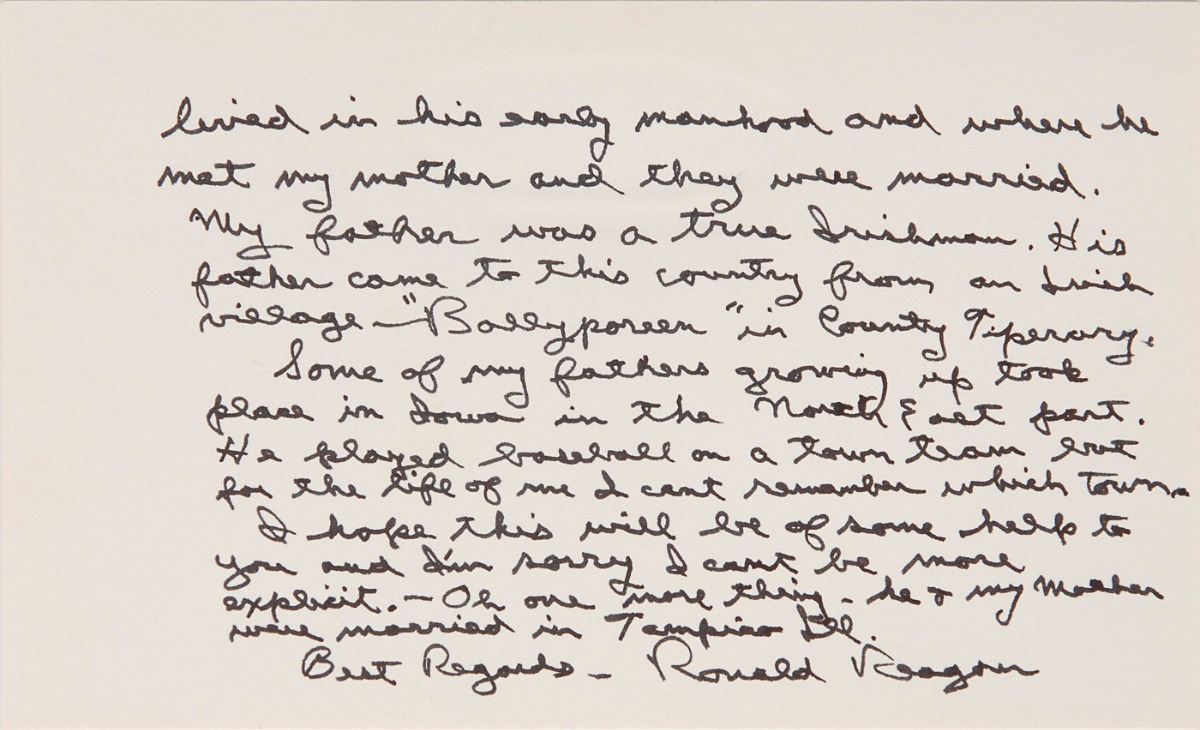 lived in his early manhood and where he
met my mother and they were married.
My father was a true Irishman. His
father came to this country from an Irish
village — "Ballyporeen" in County Tiperary.
Some of my fathers growing up took
place in Iowa in the North East part.
He played baseball on a town team but
for the life of me I cant remember which town.
I hope this will be of some help to
you and I'm sorry I cant be more
explicit. — Oh one more thing - he & my Mother
were married in Tampico Ill.
Best Regards - Ronald Reagan